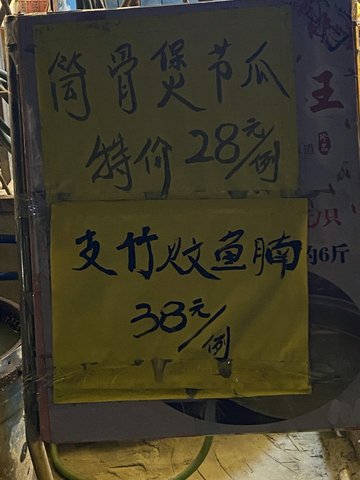 筒骨煲节瓜
特价28元/例
支竹炆鱼腩
38元/例
王
道
只
约6斤